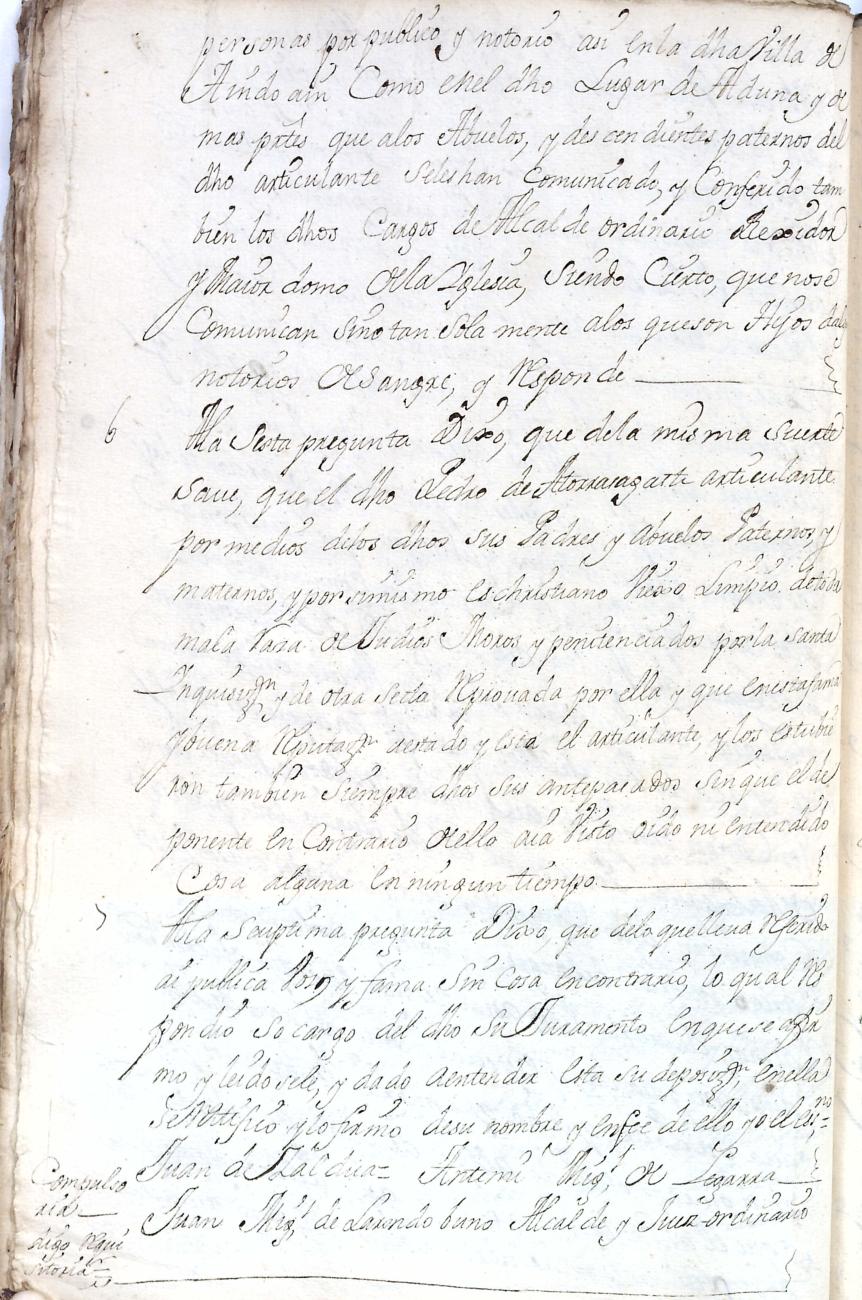 personas por publico y notorio asi en la dha Villa de
Aindoain Como en el dho Lugar de Alduna y de
mas prtes que alos Abuelos, y descendientes paternos del
dho articulante seles han Comunicado, y Conferido tam
bien los dhos Cargos de Alcalde ordinario Rexidor
y Maior domo de la Iglesia, siendo Cierto, que nose
Comunican sino tan sola mente alos que son Hijos dalgo
notorios de sangre, y Responde
6 Ala Sesta pregunta Dixo, que dela misma suerte
save, que el dho Pedro de Atorrasagasti articulante
por medios delos dhos sus Padres y abuelos Paternos, y
maternos, y por simismo es christiano Viexo Limpio de toda
mala Raza de Judios Moros y penitenciados por la santa
Inquisizn y de otra secta Reprouada por ella y que en esta fama
y buena Reputazn a estado y esta el articulante, y los estubie
ron tambien siempre dhos sus antepasados sin que el de
ponente en Contrario de ello aia Visto oido ni entendido
Cosa alguna en ningun tiempo
7 Ala Septima pregunta Dixo que delo que lleua Referido
ai publica Voz y fama sin cosa en contrario, lo qual Res
pondio so cargo del dho su Juramento en que se afir
mo y leidosele, y dado a entender esta su deposizn, en ella
se Retifico y lo firmo de su nombre y en fee de ello yo el essno=
Juan de Zaldua= Antemi Migl de Legarra
Compulso
ria
digo Requi
sitoria=
Juan Migl de Larrondobuno Alcalde y Juez ordinario